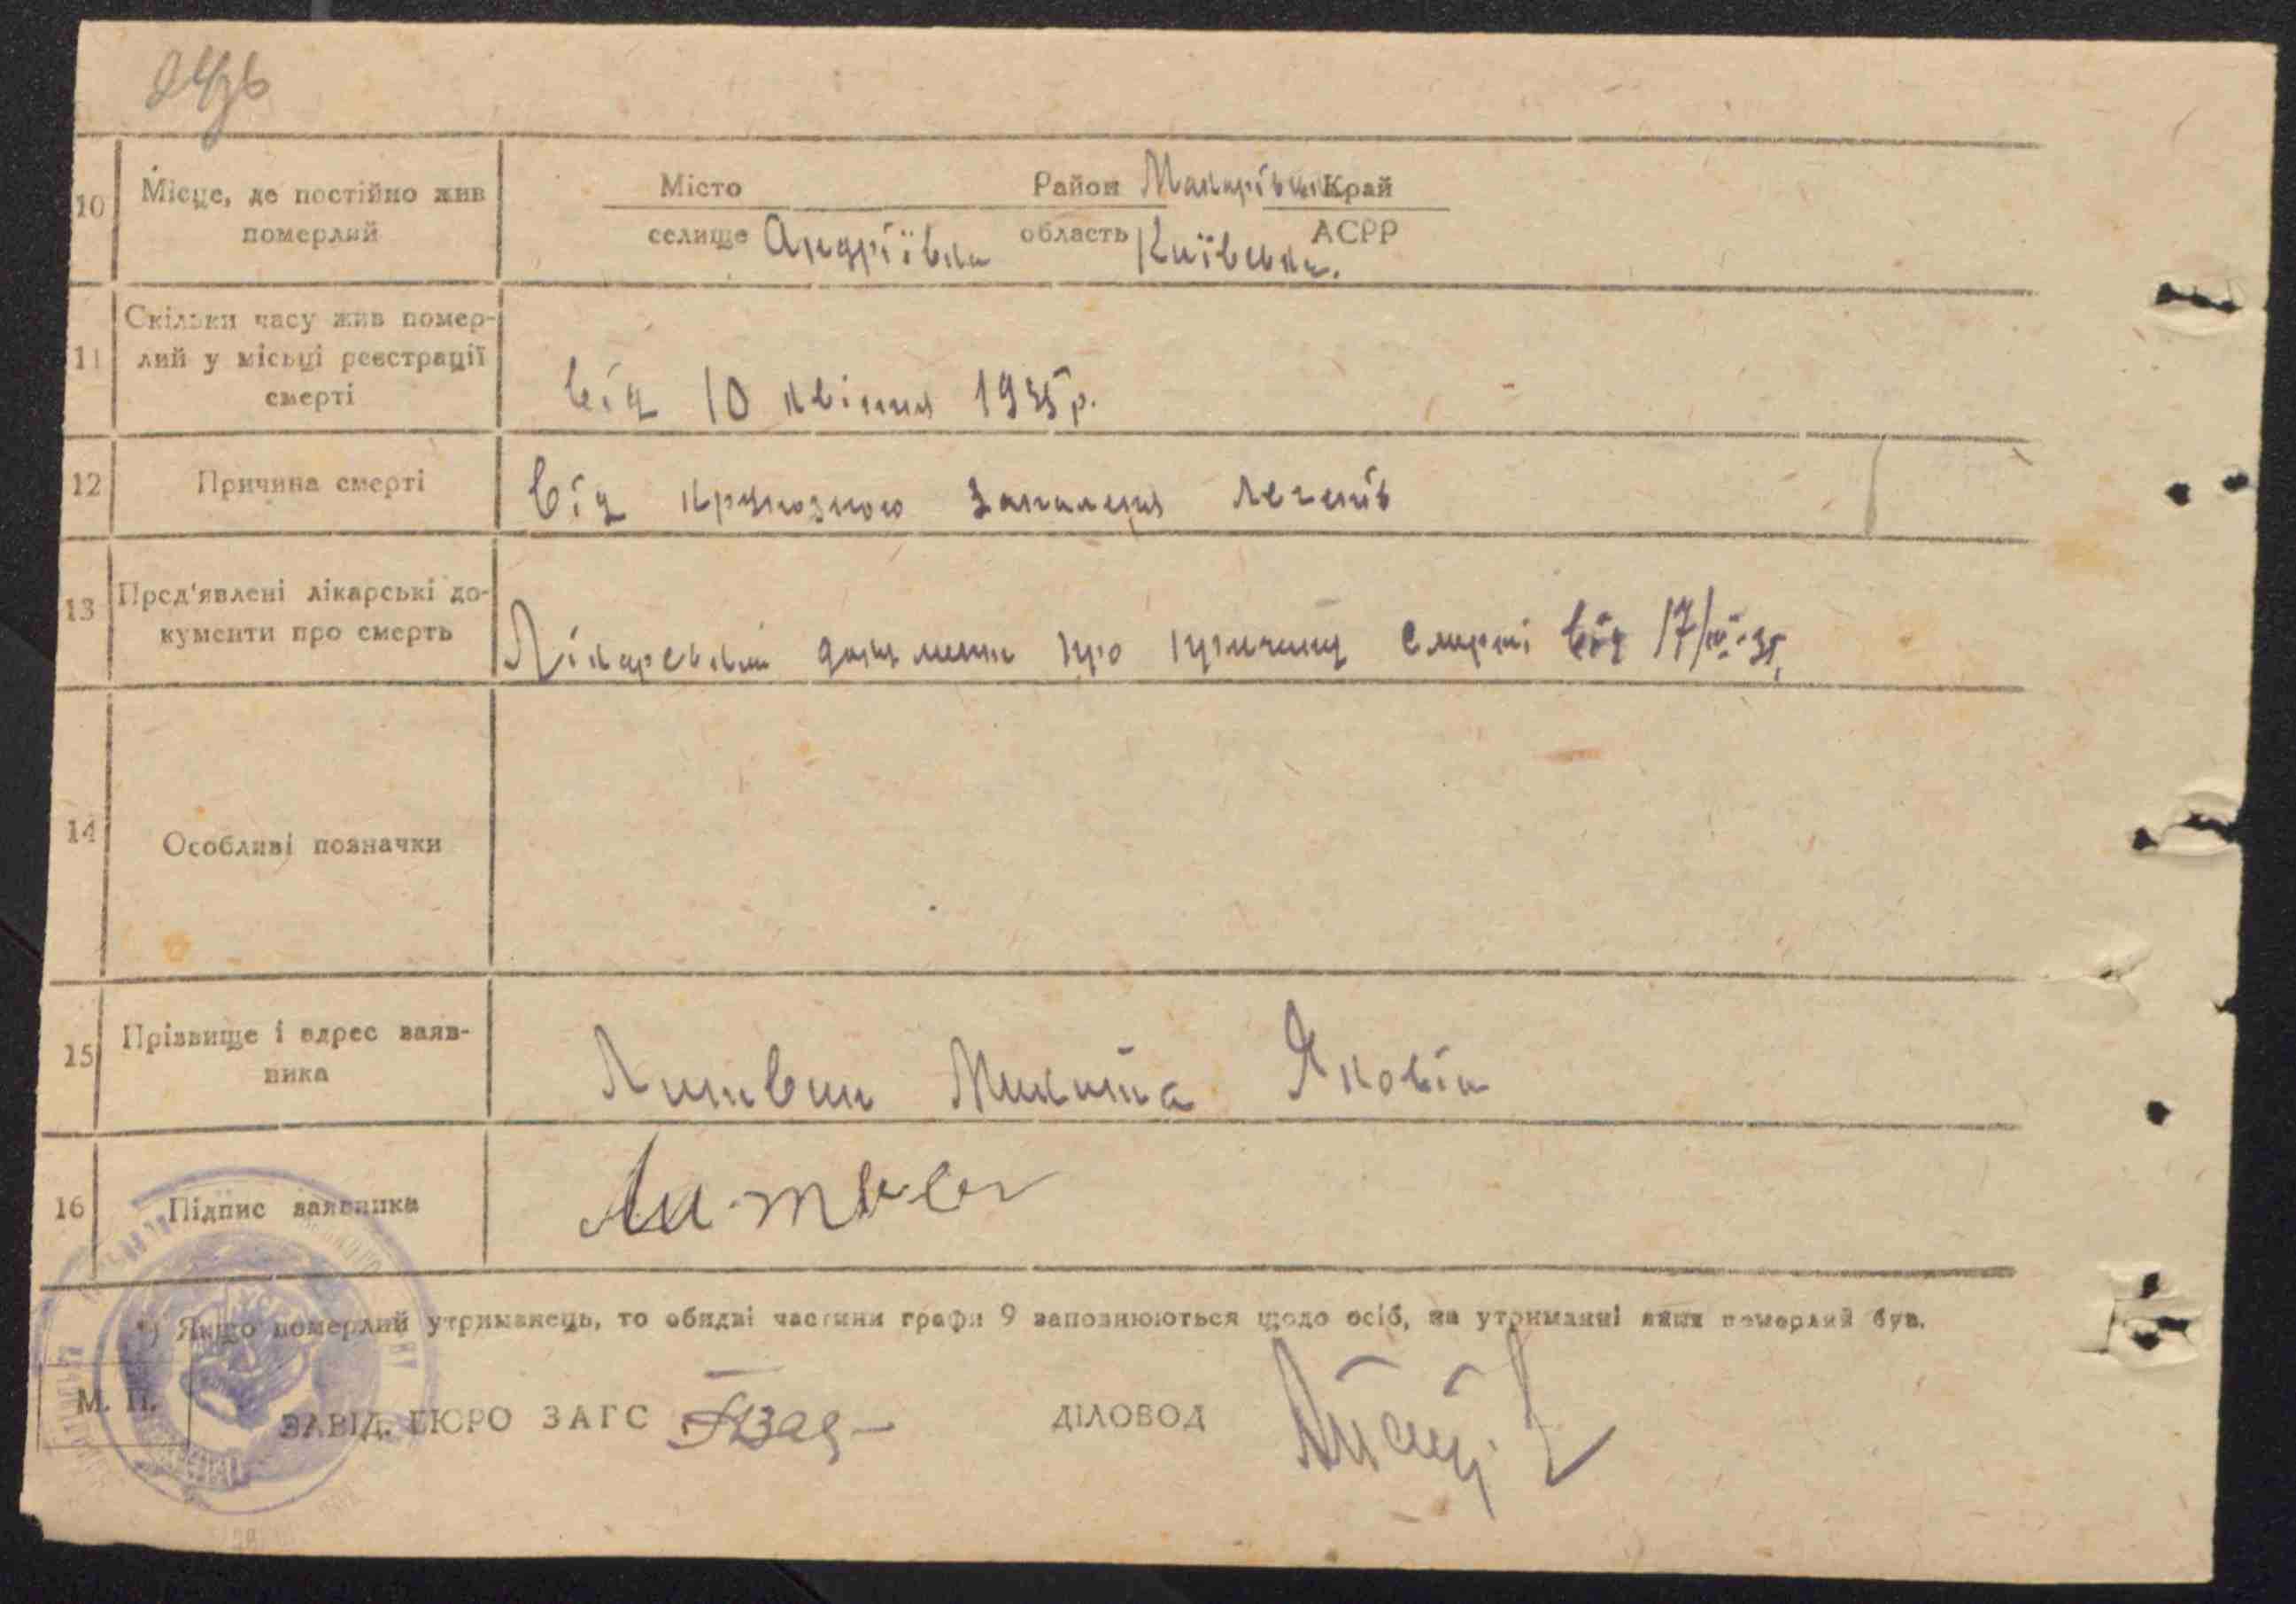 10 Місце, де постійно жив
померлий
Місто Район Макарівськ Край
селище Андріївка область Київська. АСРР
11 Скільки часу жив помер-
лий у місьці реєстрації
смерті
від 10 квітня 1935 р.
12 Причина смерті
від крупозного запаленя легенів
13 Пред'явлені лікарські до-
кументи про смерть
Лікарський документ про причину смерті від 17/IV-35.
14 Особливі позначки
15 Прізвище і адрес заяв-
ника
Литвин Микита Яковів
16 Підпис заявника
Литвин
*) Якщо померлий утриманець, то обидві частини графи 9 заповнюються щодо осіб, на утриманні яких померлий був.
М. П.
ЗАВІД. БЮРО ЗАГС ДІЛОВОД